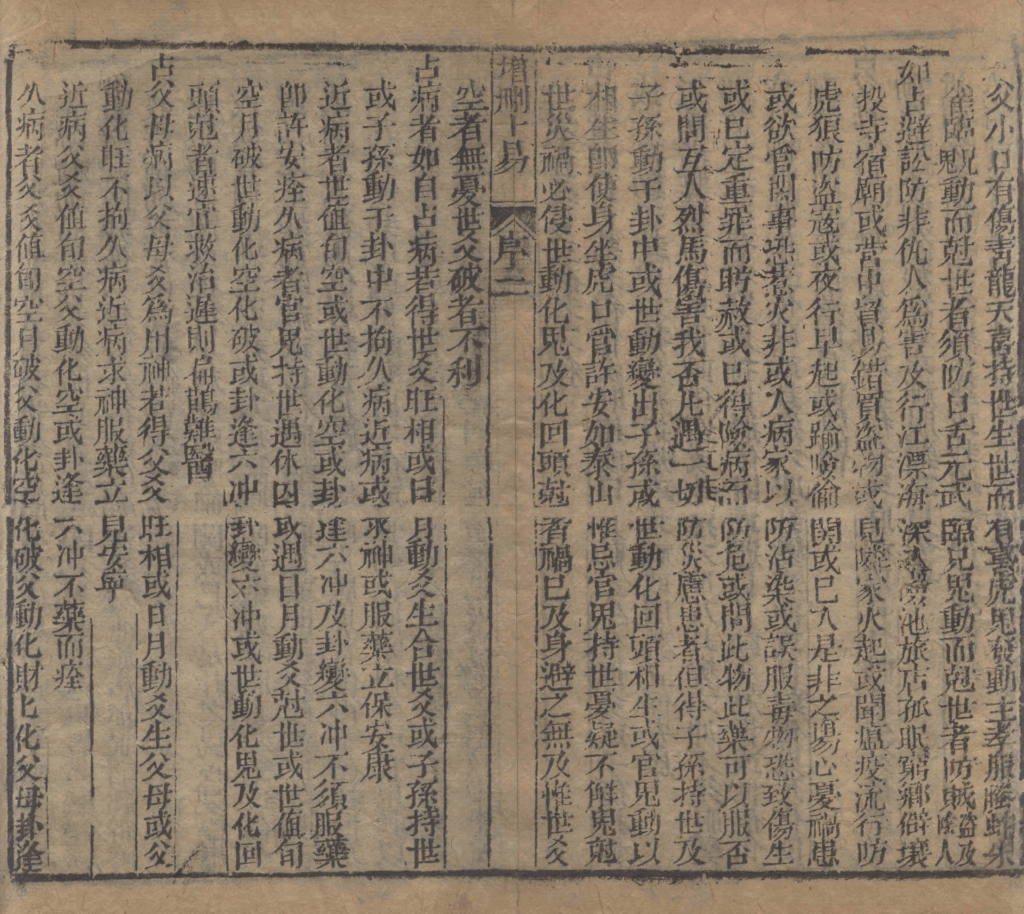 父小口有傷青龍天喜持世生世而有虎鬼發動主孝服螣蛇朱
雀臨鬼動而尅世者須防口舌元武臨兄鬼動而尅世者防賊盜及陰人
如占避訟防非仇人為害及行江漂海深入旅店孤眠窮鄉僻壤
投寺宿廟或營中貿易錯買盜物或見隣家火起或聞瘟疫流行防
虎狼防盜寇或夜行早起或踰險偷関或已入是非之場心憂禍患
或欲管閑事恐惹火非或入病家以防沾染或誤服毒物恐致傷生
或已定重罪而盼赦或已得險病而防危或問此物此藥可以服否
或問互人烈馬傷害我否凡遇一切防災慮患者但得子孫持世及
子孫動于卦中或世動變出子孫或世動化回頭相生或官鬼動以
相生即使身坐虎口管許安如泰山惟忌官鬼持世憂疑不解鬼尅
世災禍必侵世動化鬼及化回頭尅者禍已及身避之無及惟世爻
增刪卜易 序二
空者無憂世爻破者不利
占病者如自占病若得世爻旺相或日月動爻生合世爻或子孫持世
或子孫動于卦中不拘久病近病或求神或服藥立保安康
近病者世值旬空或世動化空或卦逢六冲及卦變六冲不須服藥
即許安痊久病者官鬼持世遇休囚或遇日月動爻尅世或世值旬
空月破世動化空化破或卦逢六冲卦變六冲或世動化鬼及化回
頭尅者速宜救治遲則扁鵲難醫
占父母病以父母爻為用神若得父爻旺相或日月動爻生父母或父
動化旺不拘久病近病求神服藥立見安寧
近病父爻值旬空父動化空或卦逢六冲不藥而痊
久病者父爻值旬空月破父動化空化破父動化財化父母卦逢